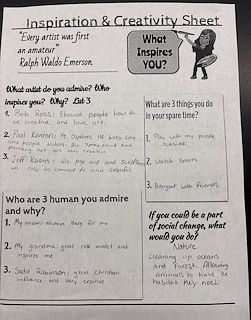 Inspiration & Creativity Sheet
"Every artist was first
an amateur"
Ralph Waldo Emerson
What
Inspires
YOU?
What artist do you admire? Who
inspires you? Why? List 3
1. Bob Ross: Showed people how to
be creative and love art.
2. Paul Kenton: He captures the busy cities
and people in 
painting art are very creative.
3. Jeff Koons: His pop art and sculptures
are easy to connect to and colorful
What are 3 things you do
in your spare time?
1. Play with my puppy
outside
2. Watch sports
3. Hangout with friends.
Who are 3 human you admire
and why?
1. My mom: always there for me
2. My grandma: great role model and
inspires me
3. Sadie Robinson: great christian
influence and very creative
If you could be a part
of social change, what
would you do?
Nature
Cleaning up oceans
and forest. Allowing
animals to have the
habitat they need.